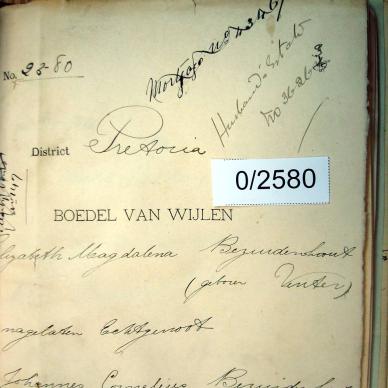 No. 2580
Mortgage No 4346/
Husband's Estate
No 36269
District Pretoria
0/2580
BOEDEL VAN WIJLEN
lizabeth Magdalena Bezuidenhout
(geboren Venter)
nagelaten Echtgenoot
Johannes Cornelius Bezuidenh